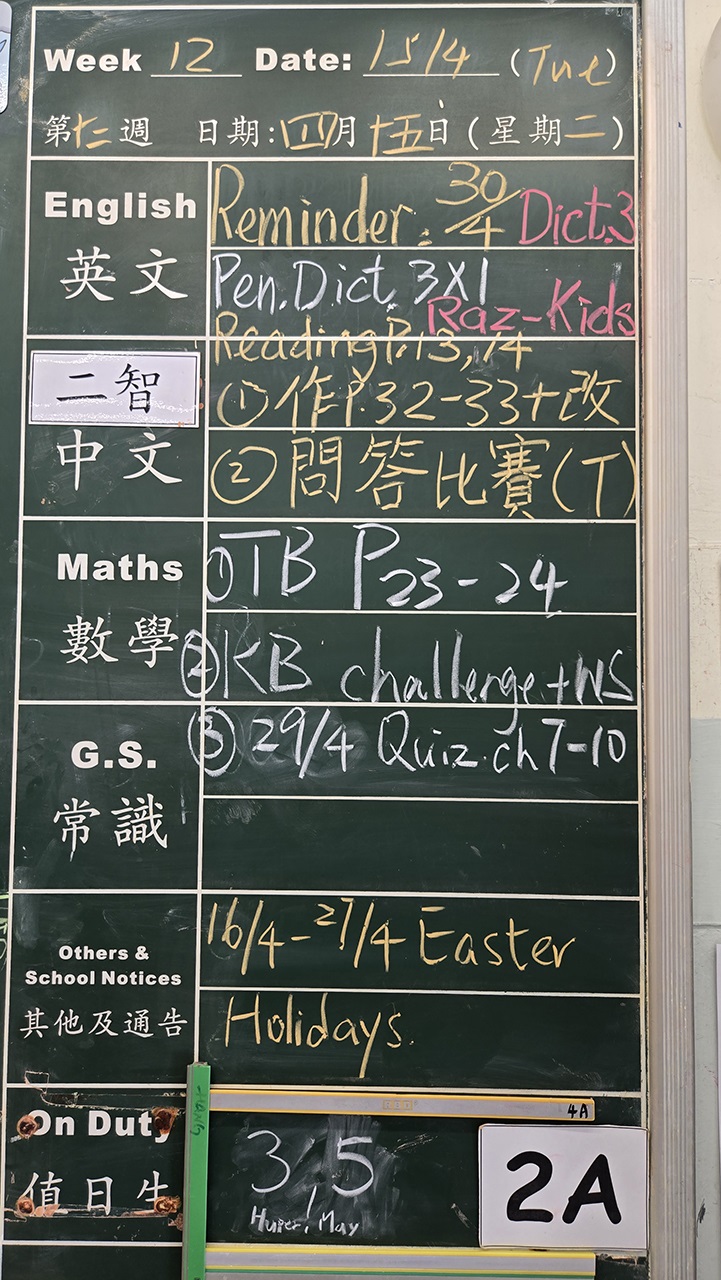 Week 12 Date: 15/4 (Tue)
第十二週 日期:四月十五日(星期二)
English
英文
Reminder: 30/4 Dict.3
Pen. Dict. 3X1
Raz-Kids
Reading P.13, 14
二智
中文
①作P.32-33+改
②問答比賽(T)
Maths
數學
①TB P23-24
②KB challenge+WS
③29/4 Quiz.ch7-10
G.S.
常識
Others &
School Notices
其他及通告
16/4-27/4 Easter
Holidays.
On Duty
值日生
3, 5
May
4A
2A